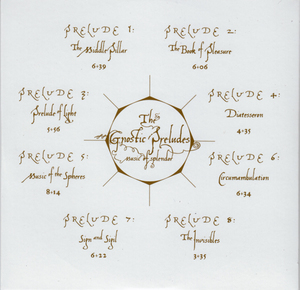 PRELUDE 1:
The Middle Pillar
6·39
PRELUDE 2:
The Book of Pleasure
6·06
PRELUDE 3:
Prelude of Light
5·56
PRELUDE 4:
Diatesseron
4·35
The
Gnostic Preludes
music of splendor
PRELUDE 5:
Music of the Spheres
8·14
PRELUDE 6:
Circumambulation
6·34
PRELUDE 7:
Sign and Sigil
6·22
PRELUDE 8:
The Invisibles
3·35